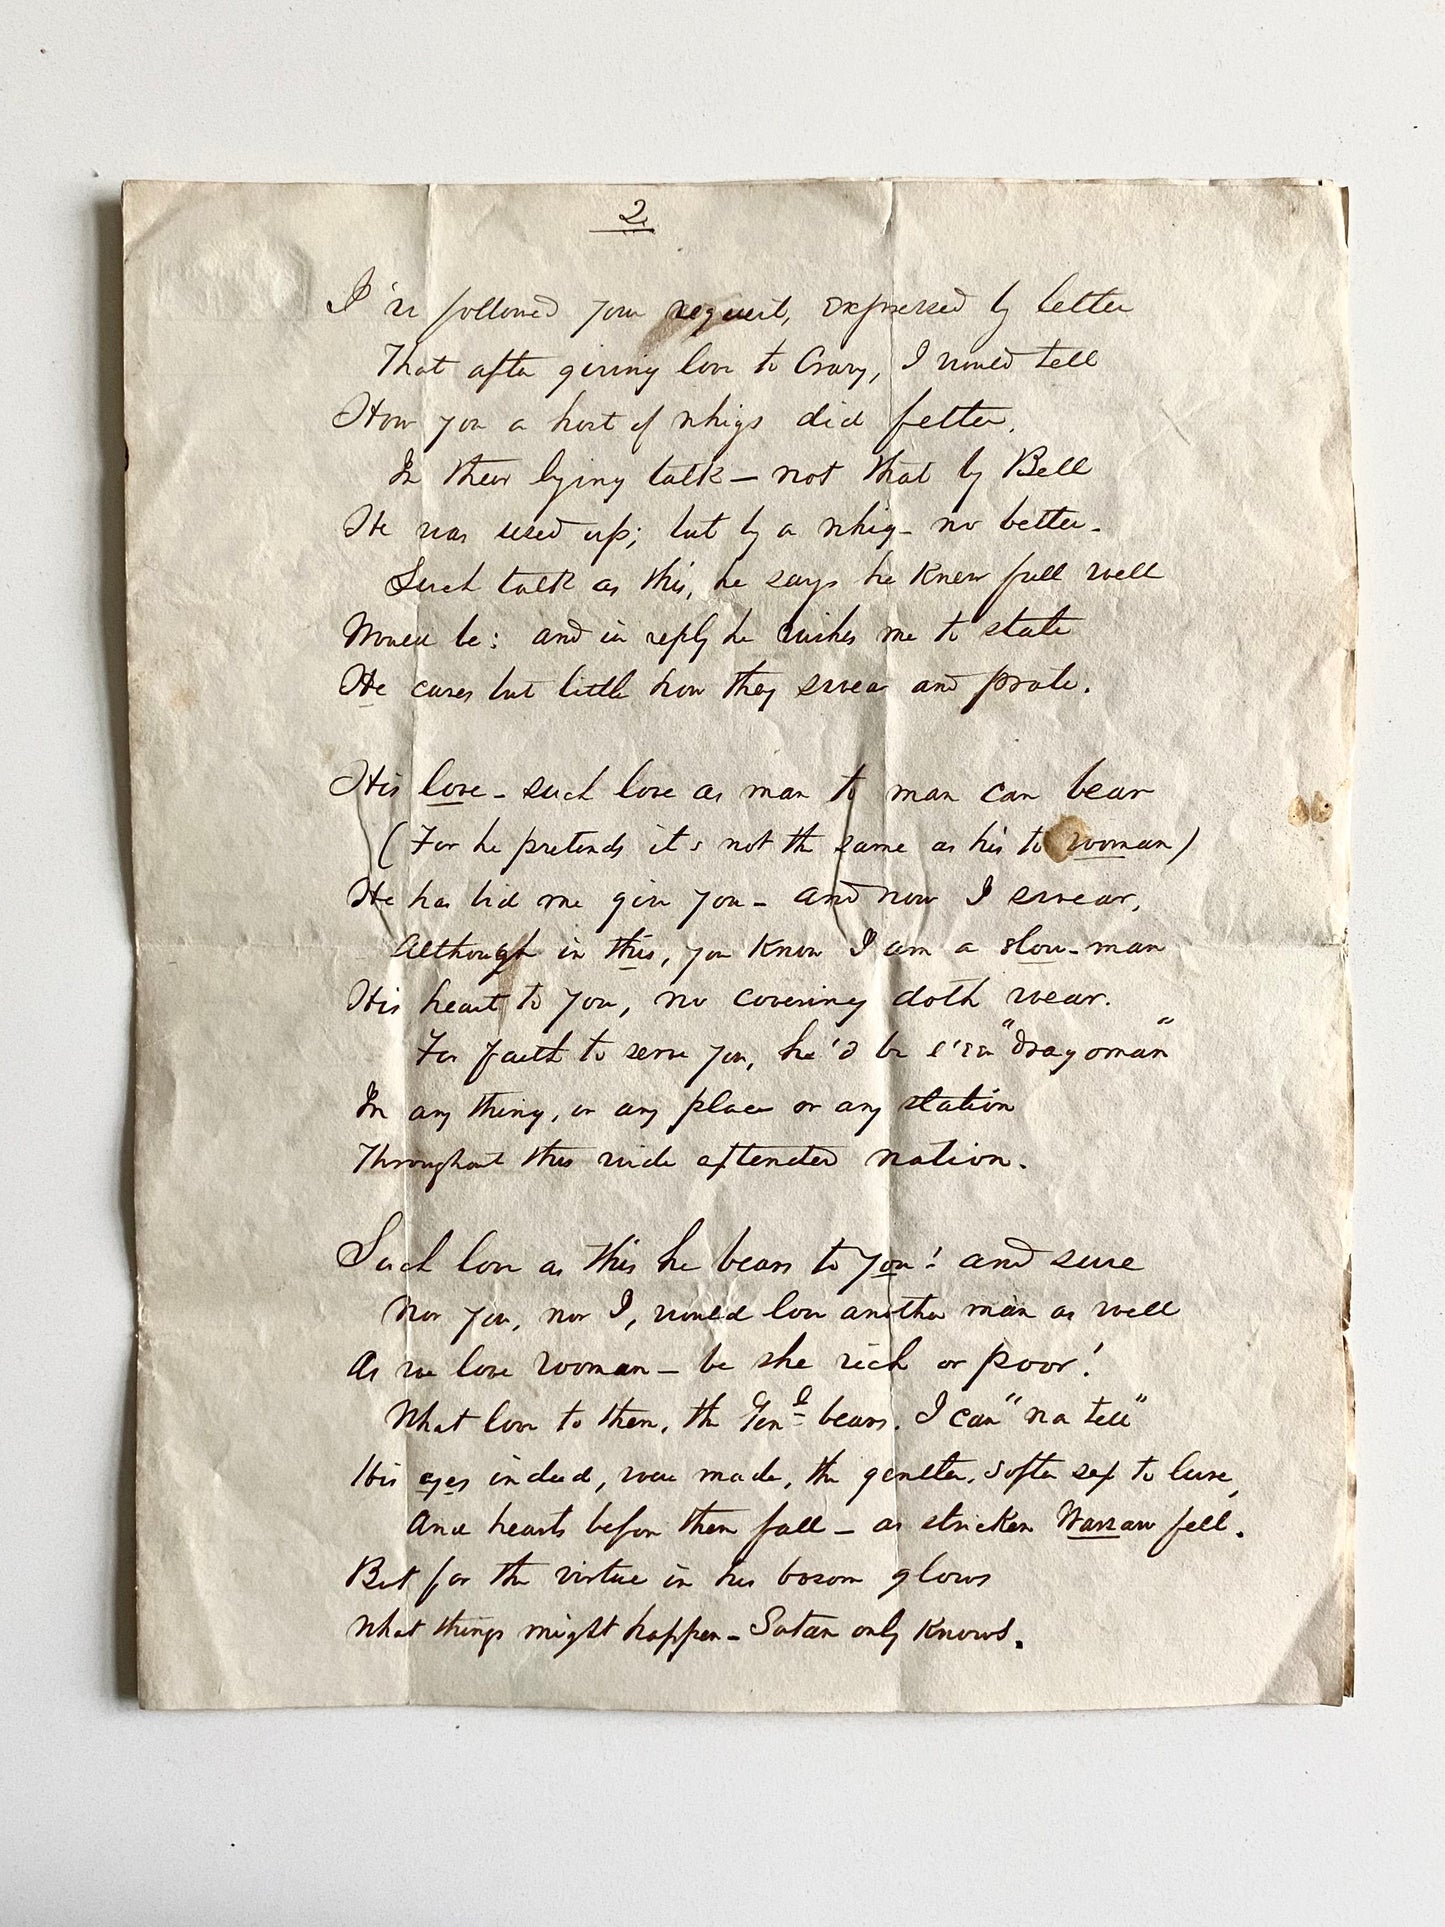 2.
I've followed your request, expressed by letter
That after giving love to Crary, I would tell
How you a host of whigs did fetter,
In their lying talk – not that by Bell
He was used up; but by a whig – no better –
Such talk as this, he says he knew full well
Would be: and in reply he wishes me to state
He cares but little how they swear and prate.
His love – such love as man to man can bear
(For he pretends it's not the same as his to woman)
He has bid me give you – and now I swear,
Although in this, you know I am a slow-man
His heart to you, no covering doth wear.
For faith to serve you, he'd be e'en "Dragoman"
In any thing, or any place or any station
Throughout this wide extended nation.
Such love as this he bears to you! and sure
Nor you, nor I, would love another man as well
As we love woman – be she rich or poor!
What love to them, the Genl bears, I can "na tell"
His eyes indeed, were made, the gentler, softer sex to lure,
And hearts before them fall – as stricken Warsaw fell.
But for the virtue in his bosom glows
What things might happen – Satan only knows.